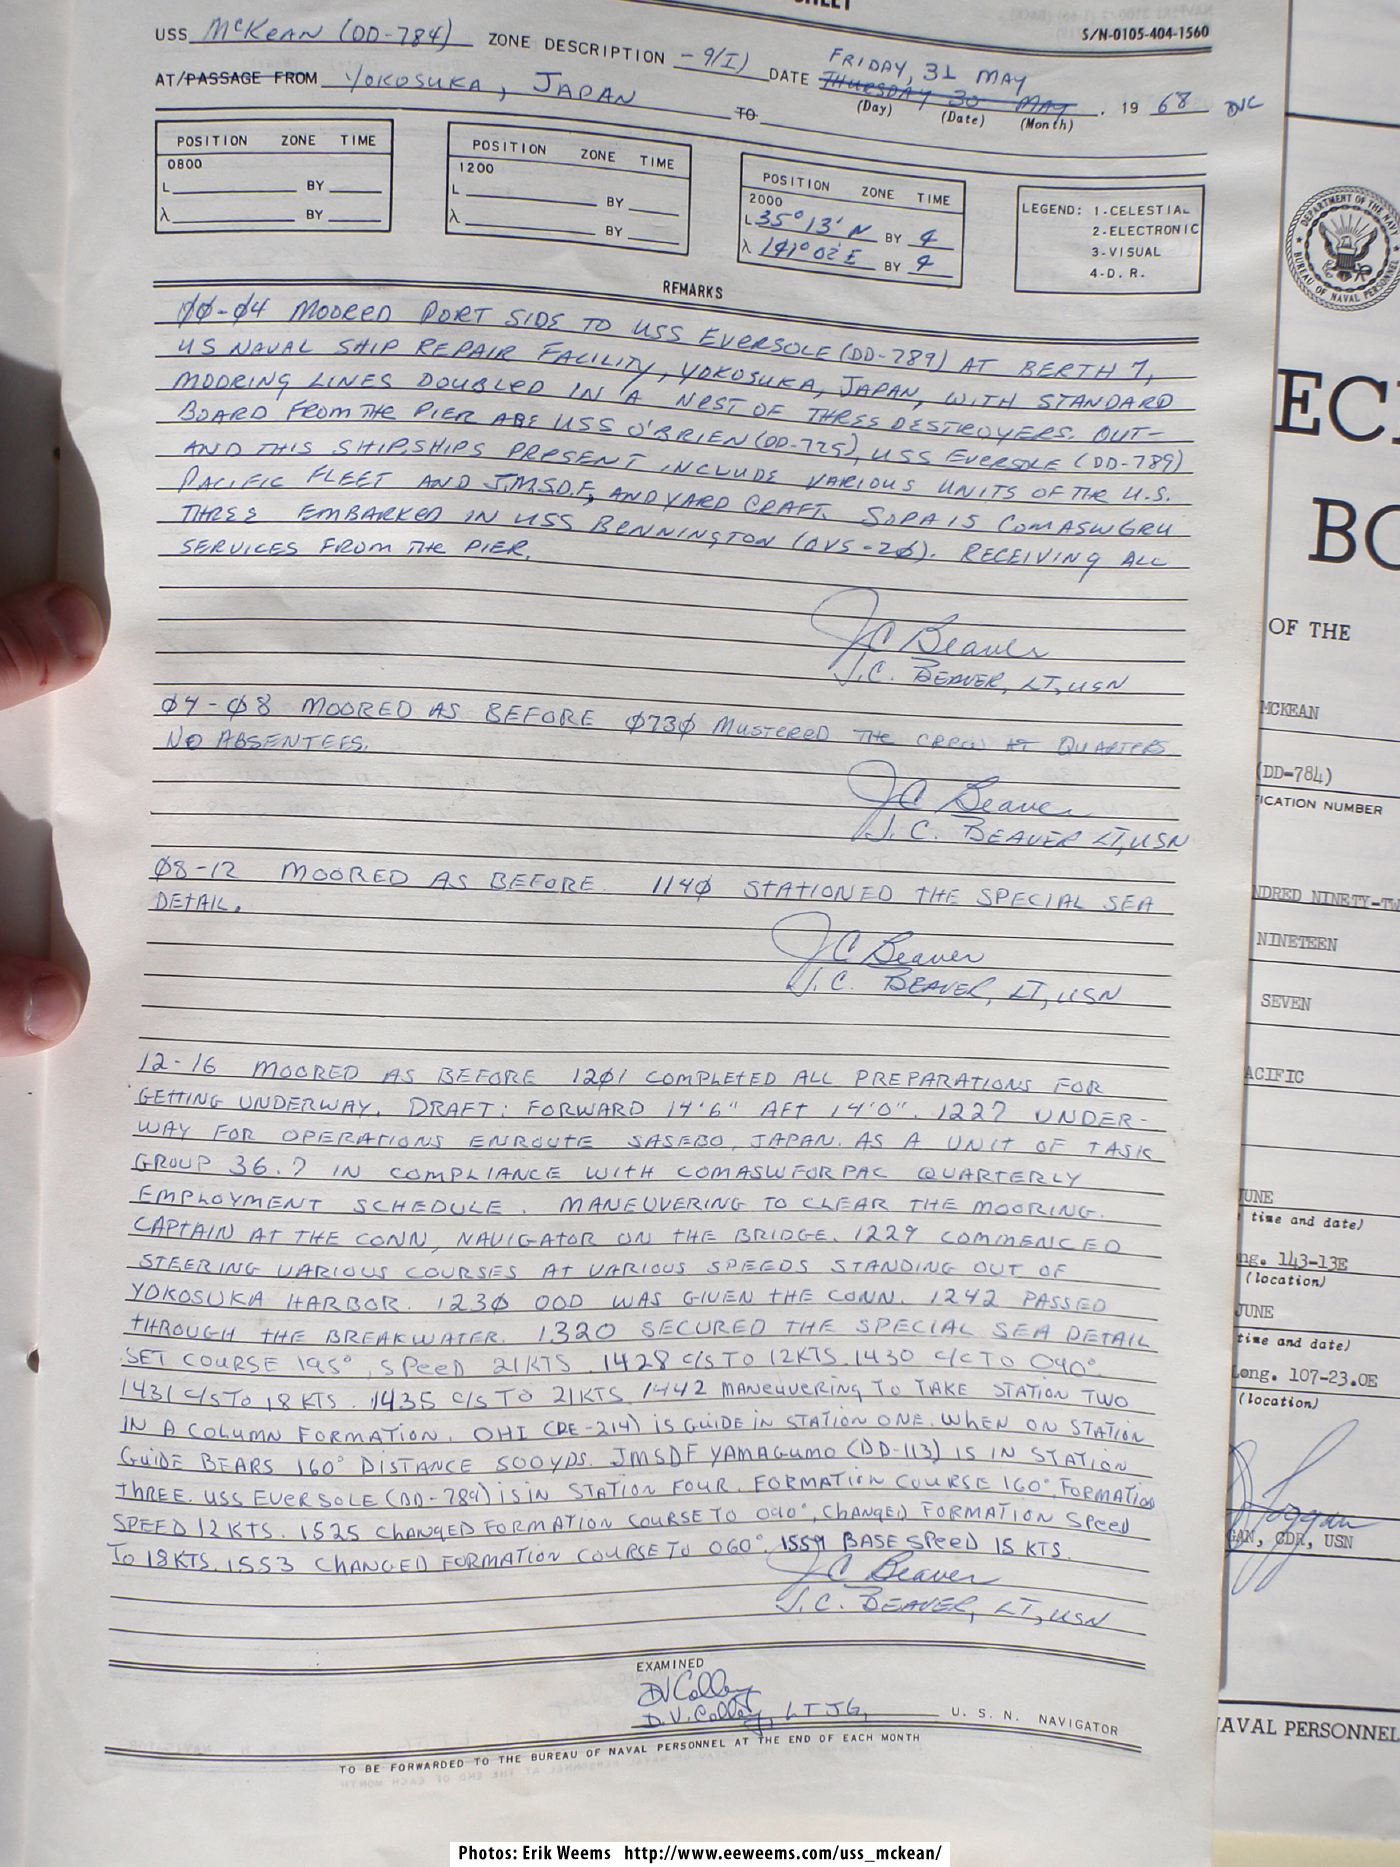 SHEET
S/N-0105-404-1560
USS McKeAN (DD-784) ZONE DESCRIPTION -9(I) DATE FRIDAY, 31 MAY
THURSDAY 30 MAY, 19 68 DVC
(Day) (Date) (Month)
AT/PASSAGE FROM YOKOSUKA, JAPAN TO
POSITION ZONE TIME
0800
L BY
λ BY
POSITION ZONE TIME
1200
L BY
λ BY
POSITION ZONE TIME
2000
L 35° 13' N BY 4
λ 141° 02' E BY 4
LEGEND: 1-CELESTIAL
2-ELECTRONIC
3-VISUAL
4-D. R.
REMARKS
ØØ-Ø4 MOORED PORT SIDE TO USS EVERSOLE (DD-789) AT BERTH 7,
US NAVAL SHIP REPAIR FACILITY, YOKOSUKA, JAPAN, WITH STANDARD
MOORING LINES DOUBLED IN A NEST OF THREE DESTROYERS. OUT-
BOARD FROM THE PIER ARE USS O'BRIEN (DD-725), USS EVERSOLE (DD-789)
AND THIS SHIP. SHIPS PRESENT INCLUDE VARIOUS UNITS OF THE U.S.
PACIFIC FLEET AND J.M.S.D.F, AND YARD CRAFT. SOPA IS COMASWGRU
THREE EMBARKED IN USS BENNINGTON (CVS-2Ø). RECEIVING ALL
SERVICES FROM THE PIER.
JC Beaver
J.C. BEAVER, LT, USN
Ø4-Ø8 MOORED AS BEFORE Ø73Ø MUSTERED THE CREW AT QUARTERS
NO ABSENTEES.
JC Beaver
J. C. BEAVER LT, USN
Ø8-12 MOORED AS BEFORE. 114Ø STATIONED THE SPECIAL SEA
DETAIL.
JC Beaver
J. C. BEAVER, LT, USN
12-16 MOORED AS BEFORE 12Ø1 COMPLETED ALL PREPARATIONS FOR
GETTING UNDERWAY. DRAFT: FORWARD 14'6" AFT 14'0". 1227 UNDER-
WAY FOR OPERATIONS ENROUTE SASEBO, JAPAN. AS A UNIT OF TASK
GROUP 36.7 IN COMPLIANCE WITH COMASWFORPAC QUARTERLY
EMPLOYMENT SCHEDULE. MANEUVERING TO CLEAR THE MOORING.
CAPTAIN AT THE CONN, NAVIGATOR ON THE BRIDGE. 1229 COMMENCED
STEERING VARIOUS COURSES AT VARIOUS SPEEDS STANDING OUT OF
YOKOSUKA HARBOR. 123Ø OOD WAS GIVEN THE CONN. 1242 PASSED
THROUGH THE BREAKWATER. 1320 SECURED THE SPECIAL SEA DETAIL
SET COURSE 195°, SPEED 21KTS 1428 C/S TO 12KTS. 1430 C/C TO 090°.
1431 C/S TO 18 KTS. 1435 C/S TO 21KTS. 1442 MANEUVERING TO TAKE STATION TWO
IN A COLUMN FORMATION. OHI (DE-214) IS GUIDE IN STATION ONE. WHEN ON STATION
GUIDE BEARS 160° DISTANCE 500YDS. JMSDF YAMAGUMO (DD-113) IS IN STATION
THREE. USS EVERSOLE (DD-789) IS IN STATION FOUR. FORMATION COURSE 160°, FORMATION
SPEED 12KTS. 1525 CHANGED FORMATION COURSE TO 090°, CHANGED FORMATION SPEED
TO 18KTS. 1553 CHANGED FORMATION COURSE TO 060°. 1559 BASE SPEED 15 KTS.
JC Beaver
J. C. BEAVER, LT, USN
EXAMINED
DVColley
D.V. Colley, LTJG, U. S. N. NAVIGATOR
TO BE FORWARDED TO THE BUREAU OF NAVAL PERSONNEL AT THE END OF EACH MONTH
DEPARTMENT OF THE NAVY
BUREAU OF NAVAL PERSONNEL
EC
BO
OF THE
MCKEAN
(DD-784)
ICATION NUMBER
NDRED NINETY-TW
NINETEEN
SEVEN
ACIFIC
JUNE
time and date)
ng. 143-13E
(location)
JUNE
time and date)
Long. 107-23.0E
(location)
GAN, CDR, USN
NAVAL PERSONNEL
Photos: Erik Weems http://www.eeweems.com/uss_mckean/